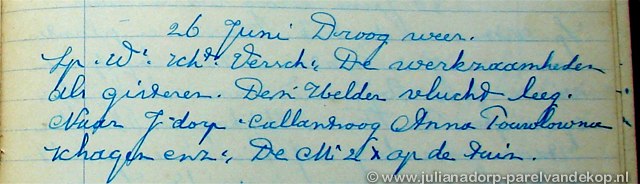 26 Juni Droog weer.
Sp. W: Kh: Versch: De werkzaamheden
als gisteren. Den Helder vlucht leeg.
Naar J:dorp. Callantsoog Anna Pauwlowna
Schagen enz:, De M: 2x op de tuin.
© www.julianadorp-parelvandekop.nl